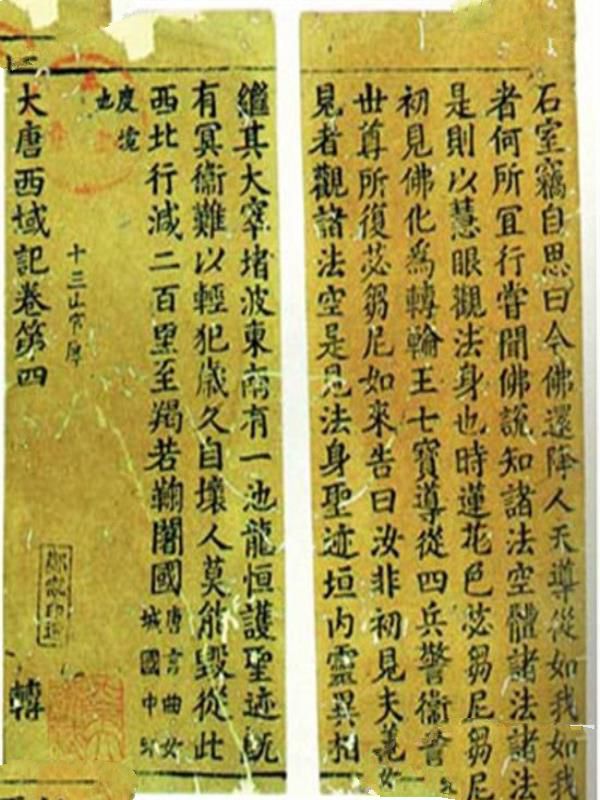 石室竊自思曰今佛還降人天導從如我如我
者何所冝行甞聞佛説知諸法空體諸法諸法
是則以慧眼觀法身也時蓮花色苾芻尼芻尼
初見佛化爲轉輪王七寶導從四兵警衛警
世尊所復苾芻尼如來告曰汝非初見夫
見者觀諸法空是見法身聖迹垣内靈異相
繼其大窣堵波東南有一池龍恒護聖迹旣
有冥衛難以輕犯歳久自壞人莫能毀從此
西北行減二百里至羯若鞠闍國
唐言曲女
城國中印
度境
也
大唐西域記卷第四
十三
轉